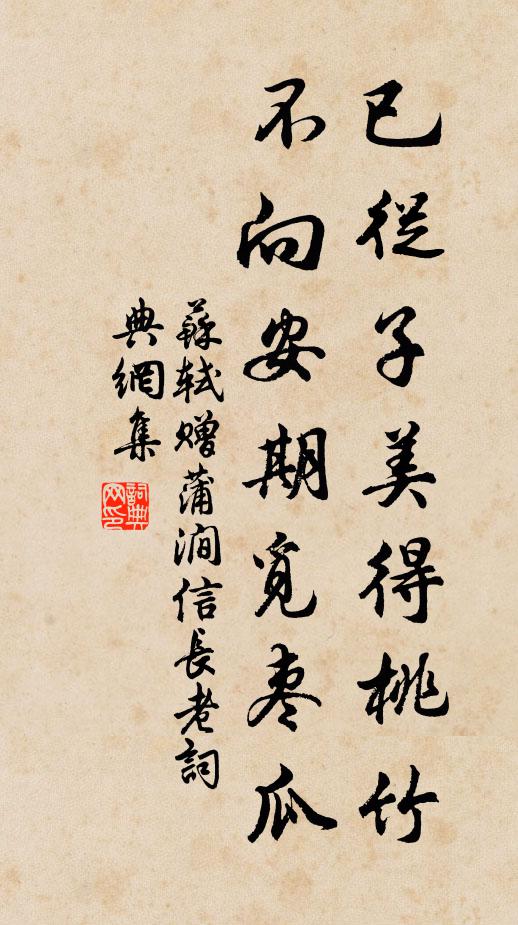 已從子美得桃竹
不向安期覓枣瓜
蘇軾贈蒲澗信長老詞
典網集
詞典网印